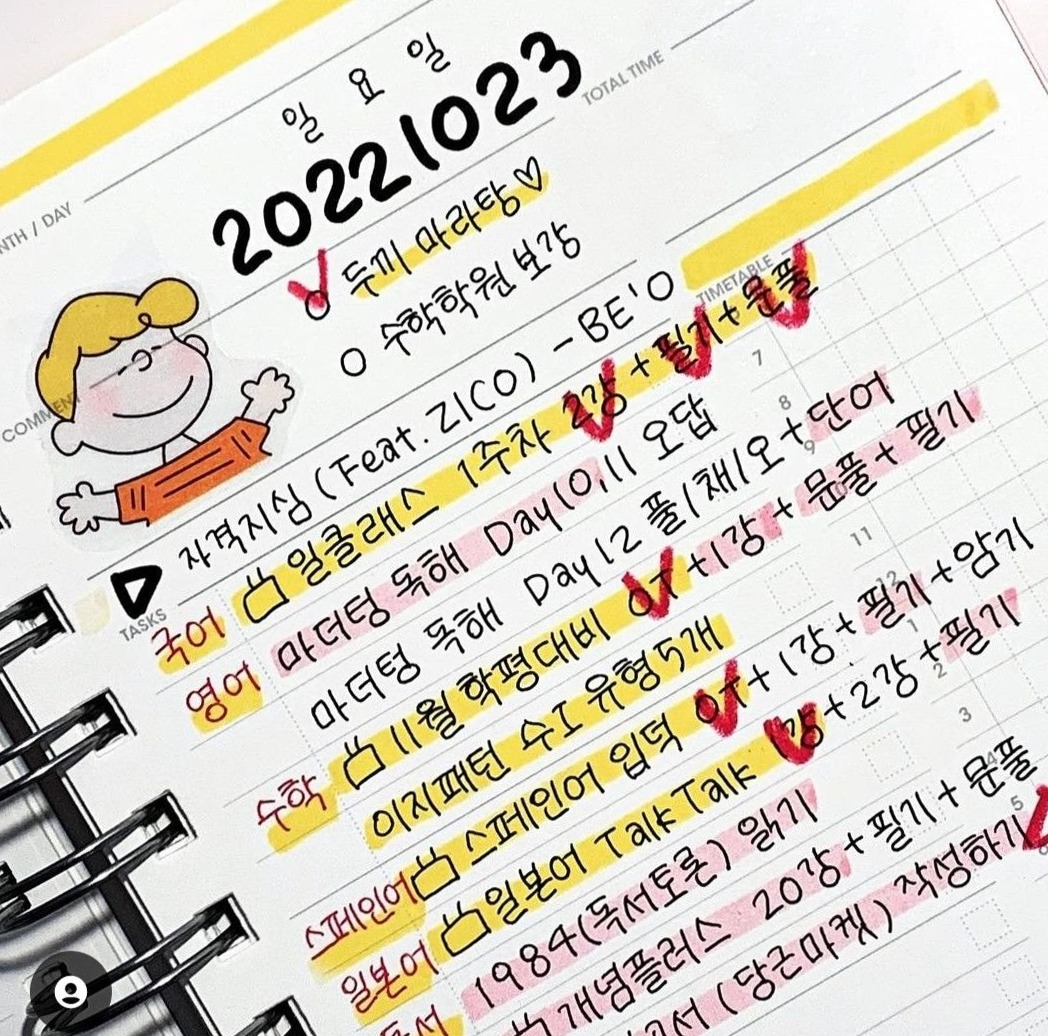 일요일
20221023
TOTAL TIME
NTH / DAY
두끼 마라탕♡
수학학원 보강
COMMENT
자격지심 (Feat. ZICO) - BE'O
TIMETABLE
TASKS
국어 일클래스 1주차 2강 + 필기 + 문풀
영어 마더텅 독해 Day10,11 오답
마더텅 독해 Day12 풀/채/오 + 단어
수학 11월 학평대비 OT + 1강 + 문풀 + 필기
이지패턴 수I 유형 5개
스페인어 스페인어 입덕 OT + 1강 + 필기 + 암기
일본어 일본어 Talk Talk 1강 + 2강 + 필기
독서 1984(독서토론) 읽기
개념플러스 20강 + 필기 + 문풀
(당근마켓) 작성하기
7
8
9
11
12
1
2
3
4
5